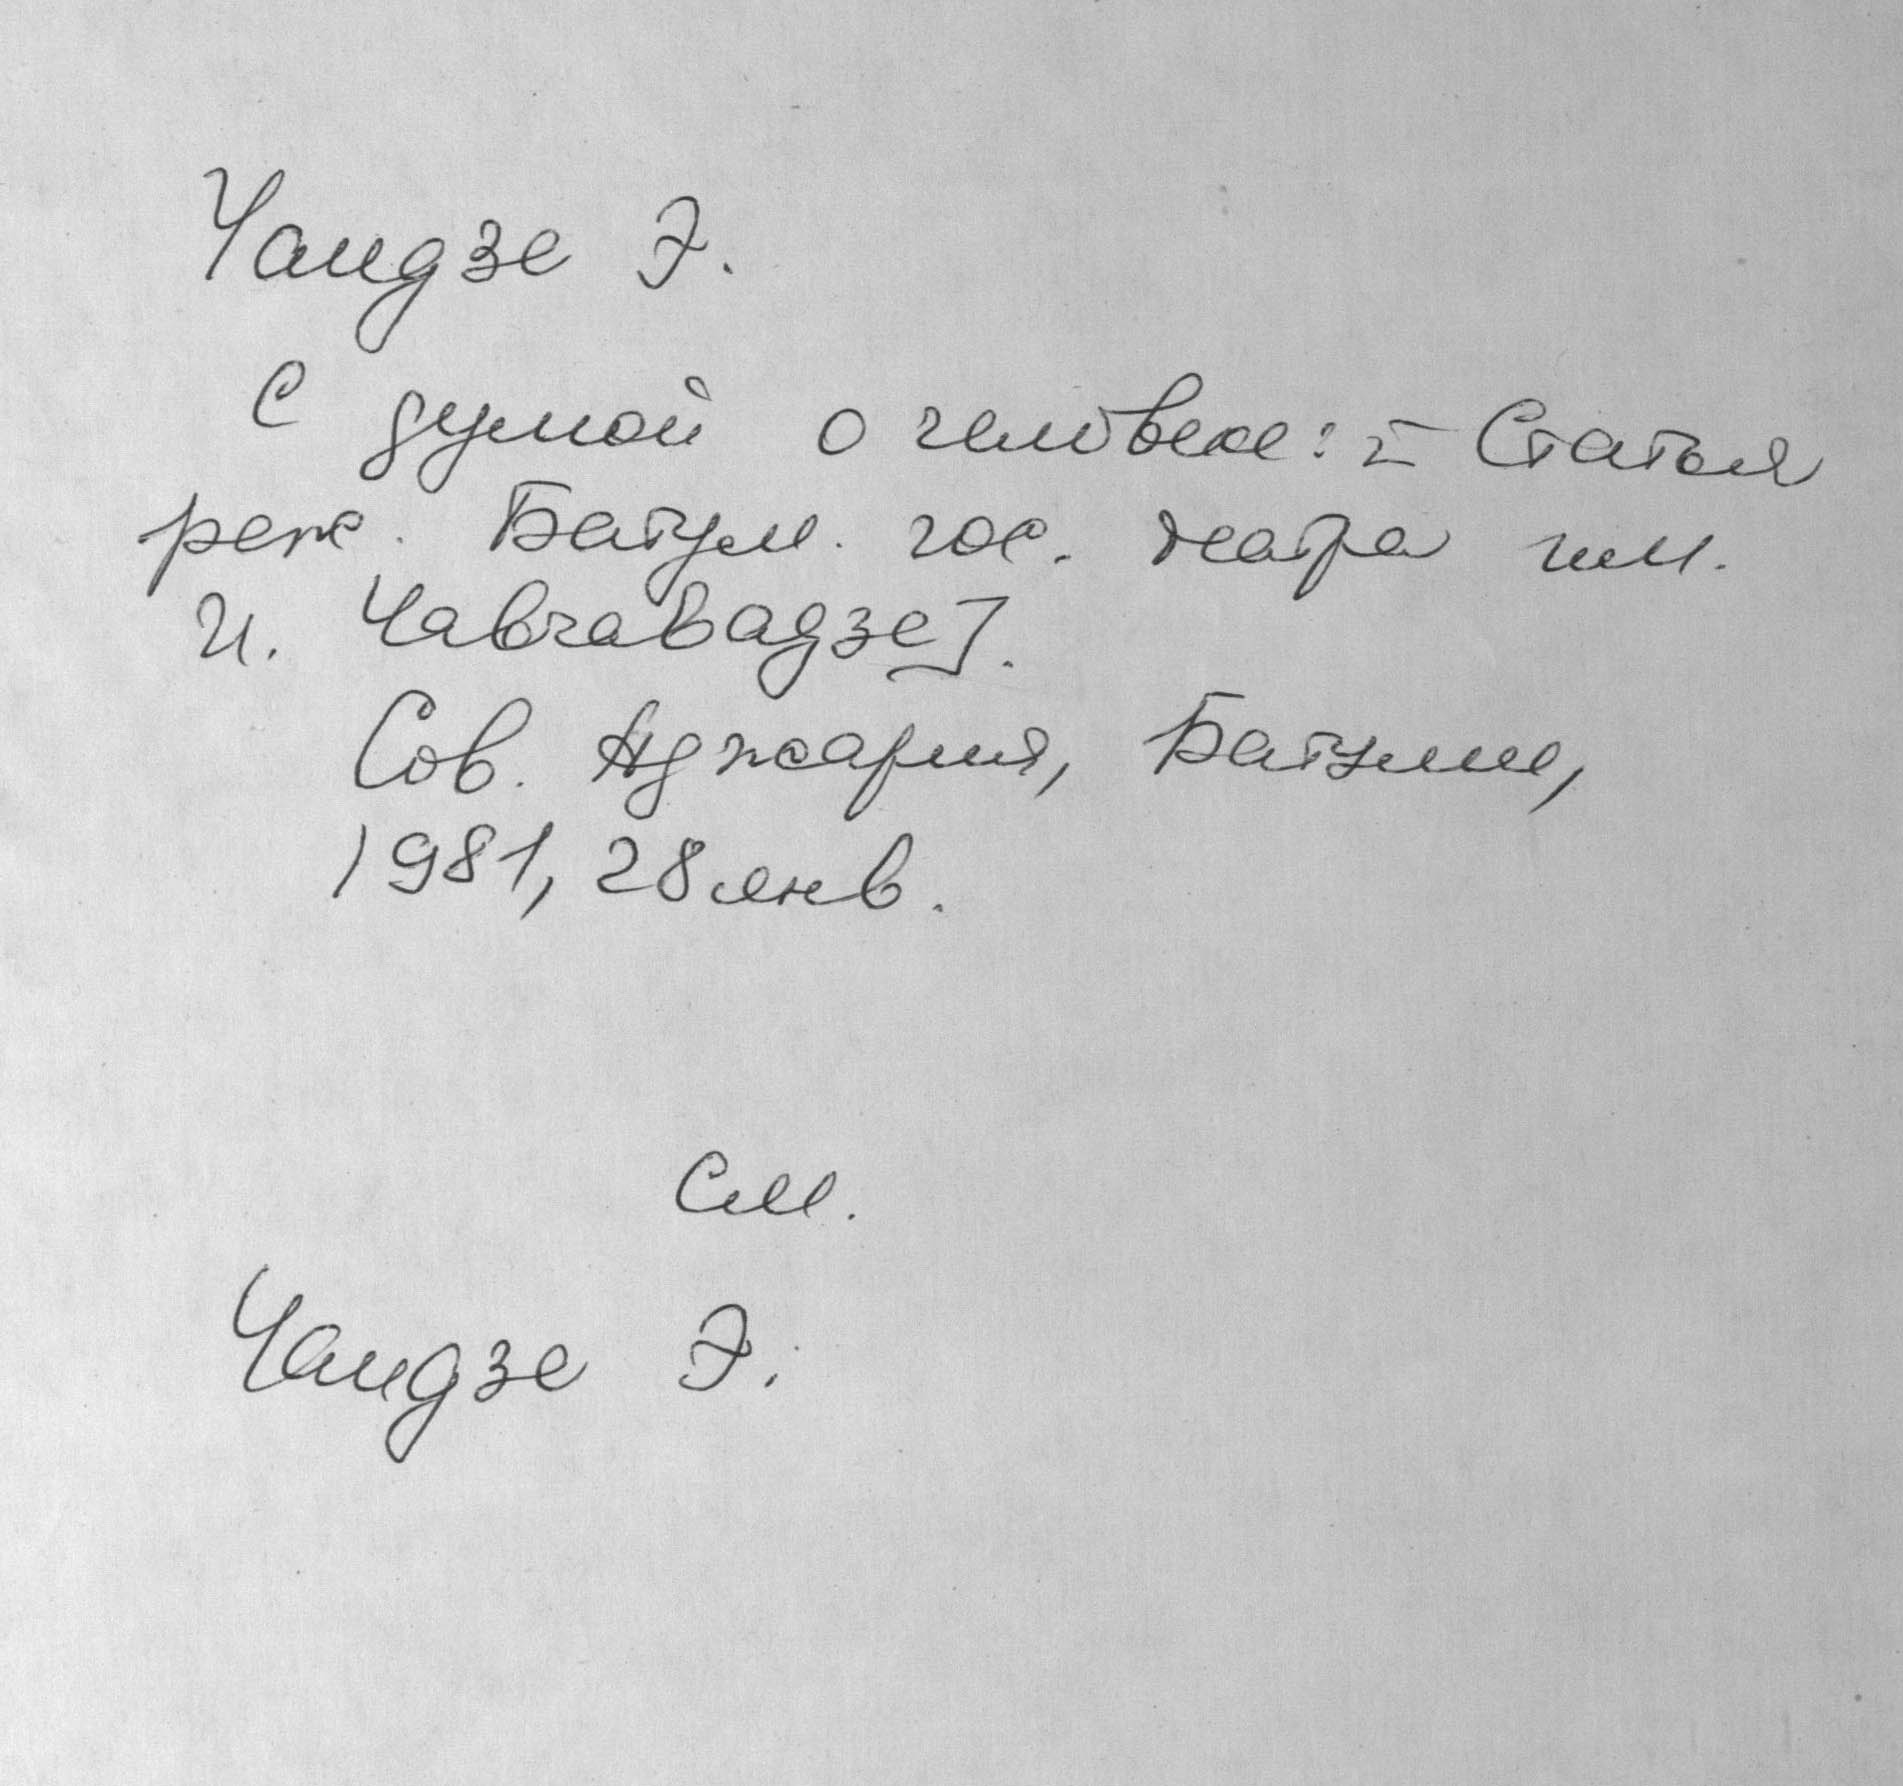 Чаидзе Э.
С думой о человеке: [Статья
реж. Батум. гос. театра им.
И. Чавчавадзе].
Сов. Аджария, Батуми,
1981, 28 янв.
См.
Чаидзе Э.